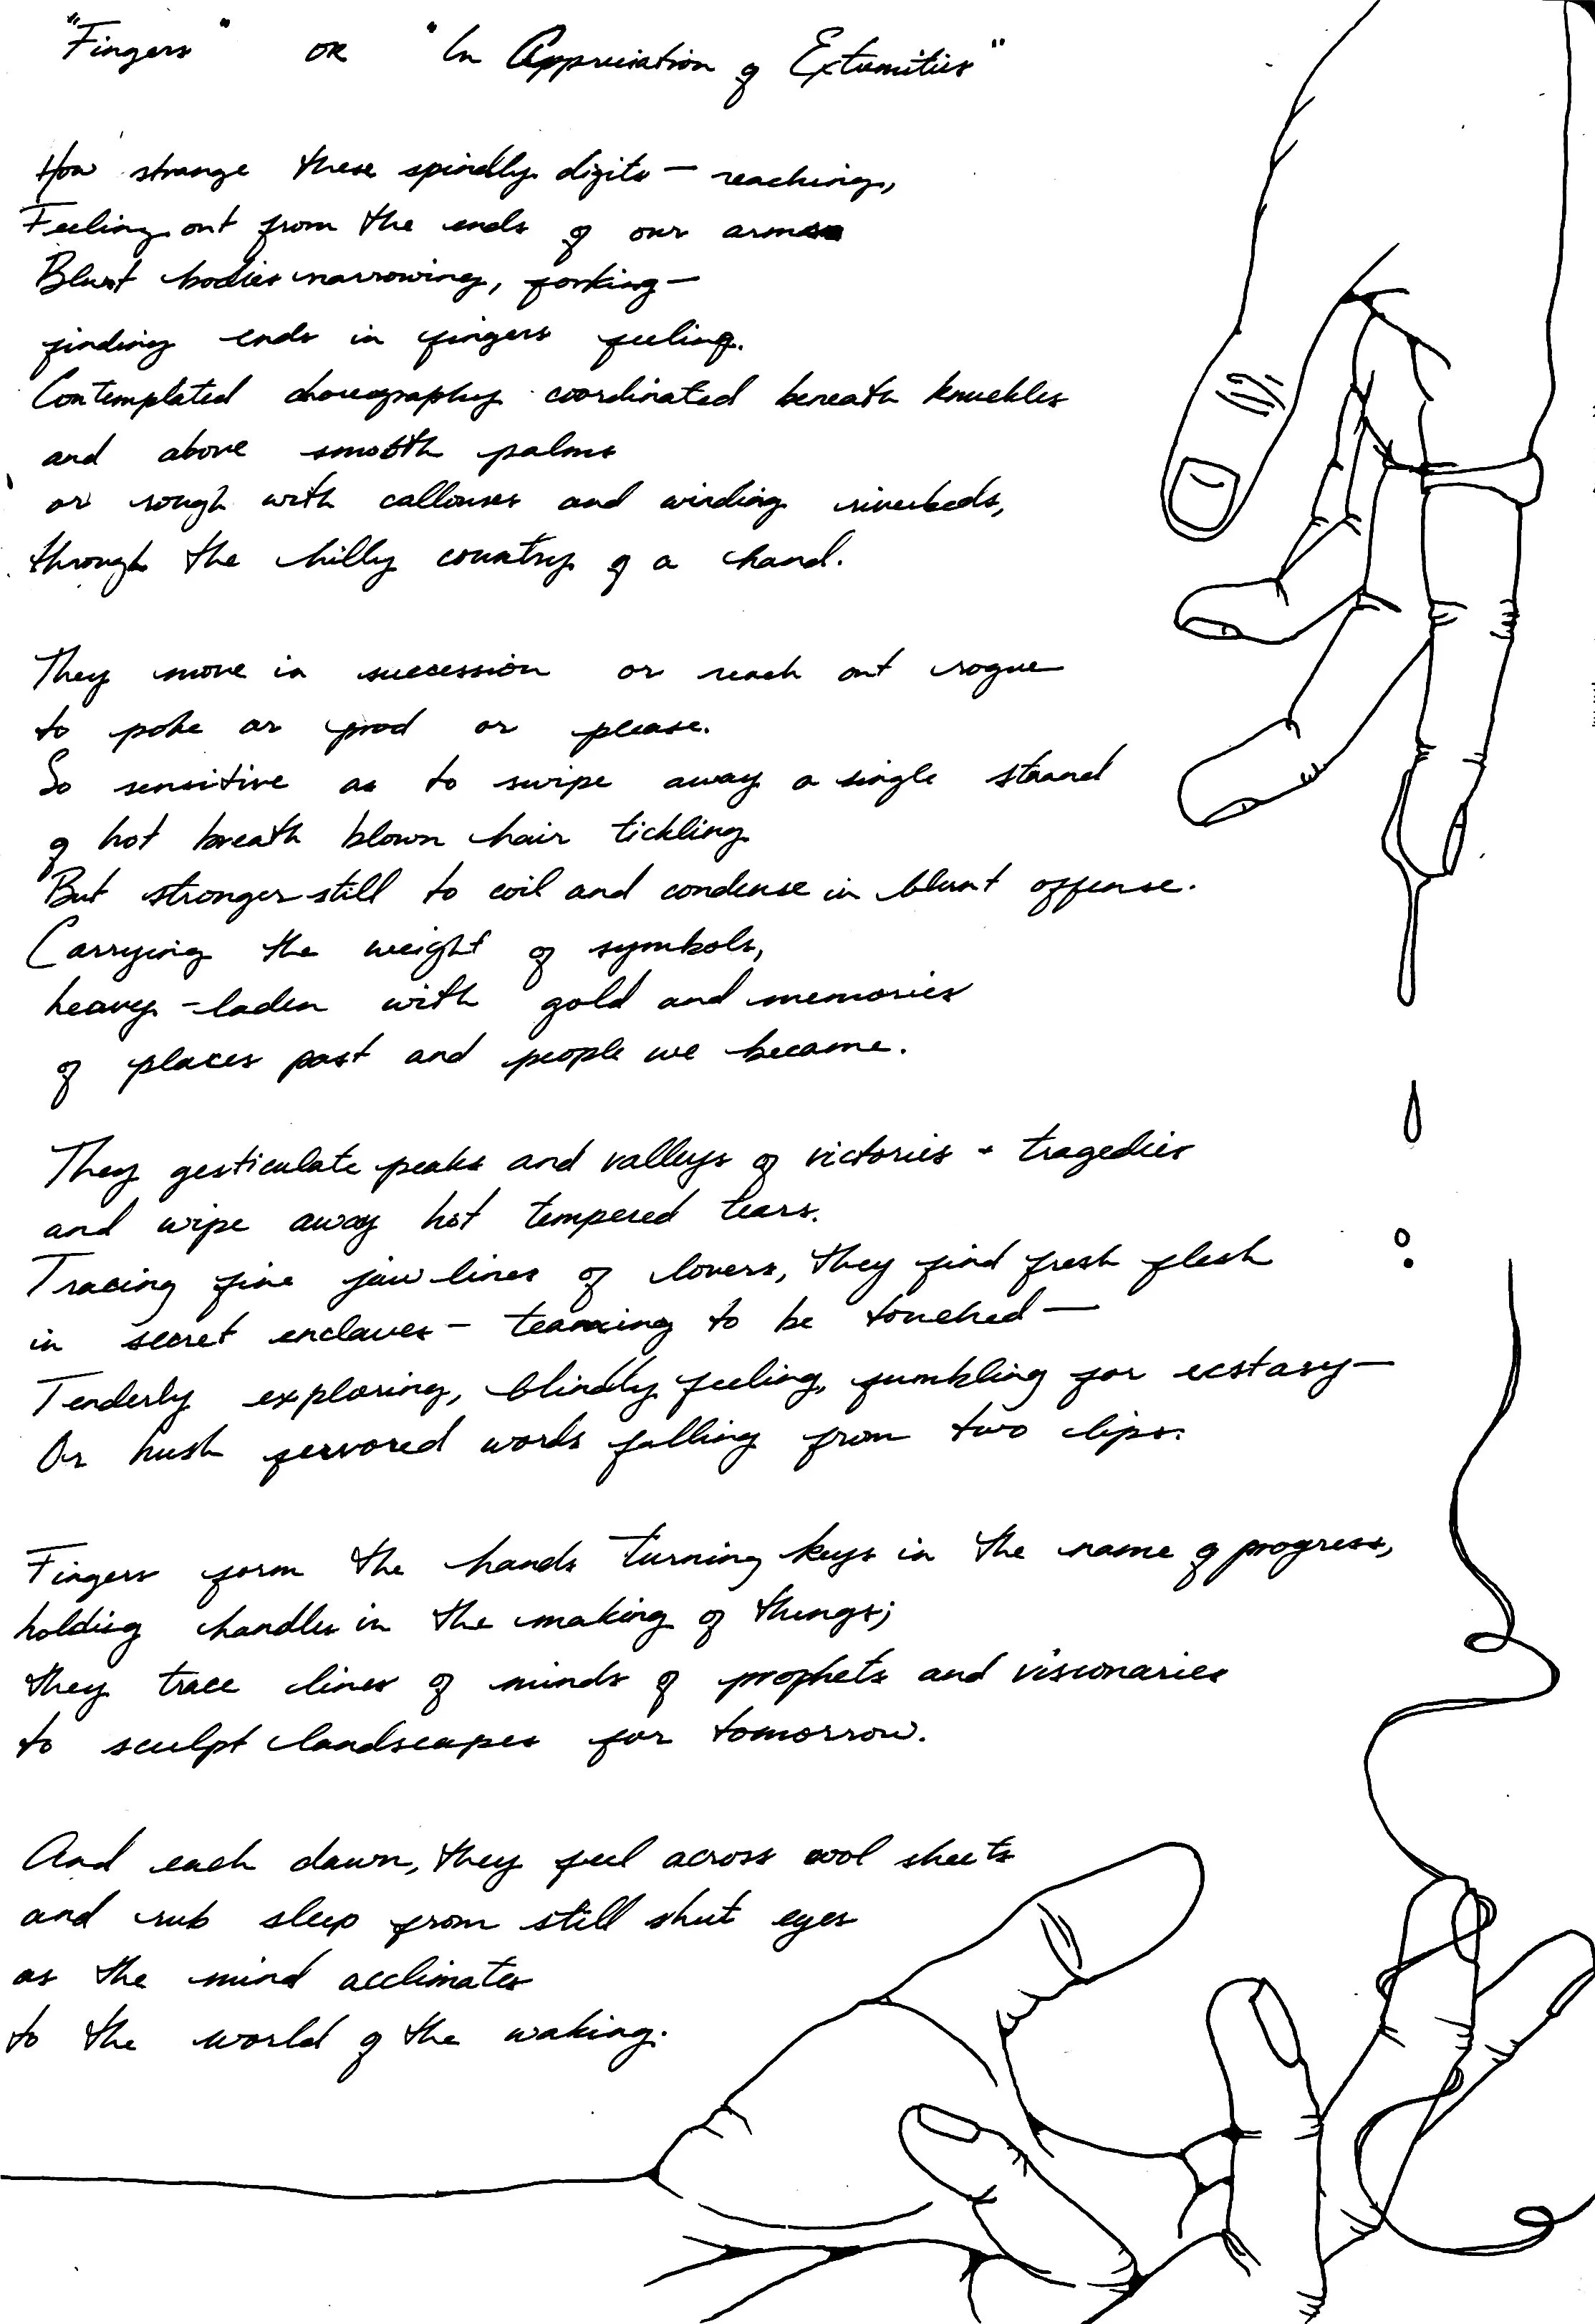 "Fingers" OR "In Appreciation of Extremities"
How strange these spindly digits — reaching,
Feeling out from the ends of our arms
Blunt bodies narrowing, forking —
finding ends in fingers feeling.
Contemplated choreography coordinated beneath knuckles
and above smooth palms
or rough with callouses and winding riverbeds,
through the hilly country of a hand.
They move in succession or reach out rogue
to poke or prod or please.
So sensitive as to swipe away a single strand
of hot breath blown hair tickling
But stronger still to coil and condense in blunt offense.
Carrying the weight of symbols,
heavy-laden with gold and memories
of places past and people we became.
They gesticulate peaks and valleys of victories + tragedies
and wipe away hot tempered tears.
Tracing fine jaw lines of lovers, they find fresh flesh
in secret enclaves — teaming to be touched —
Tenderly exploring, blindly feeling, fumbling for ecstasy —
Or hush fervored words falling from two lips.
Fingers form the hands turning keys in the name of progress,
holding handles in the making of things;
they trace lines of minds of prophets and visionaries
to sculpt landscapes for tomorrow.
And each dawn, they feel across cool sheets
and rub sleep from still shut eyes
as the mind acclimates
to the world of the waking.